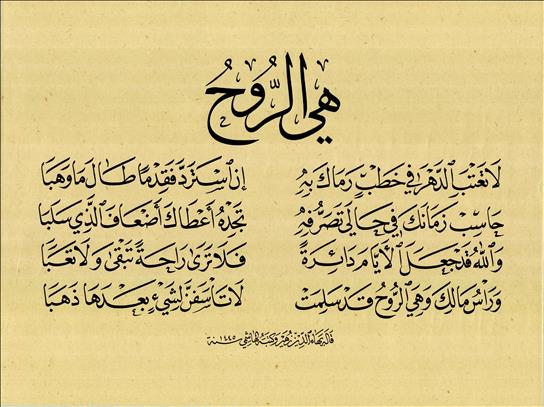 هي الرُّوحُ
لَا تَعْتَبِ الدَّهْرَ فِي خَطْبٍ رَمَاكَ بِهِ إِنِ اسْتَرَدَّ فَقِدْمًا طَالَ مَا وَهَبَا
حَاسِبْ زَمَانَكَ فِي حَالَي تَصَرُّفِهِ تَجِدْهُ أَعْطَاكَ أَضْعَافَ الَّذِي سَلَبَا
وَاللهُ قَدْ جَعَلَ الْأَيَّامَ دَائِرَةً فَلَا تَرَى رَاحَةً تَبْقَى وَلَا تَعَبَا
وَرَأْسُ مَالِكَ وَهِيَ الرُّوحُ قَدْ سَلِمَتْ لَا تَأْسَفَنَّ لِشَيْءٍ بَعْدَهَا ذَهَبَا
قاله بهاء الدين زهير وكتبه الهاشمي سنة ١٤٤٥